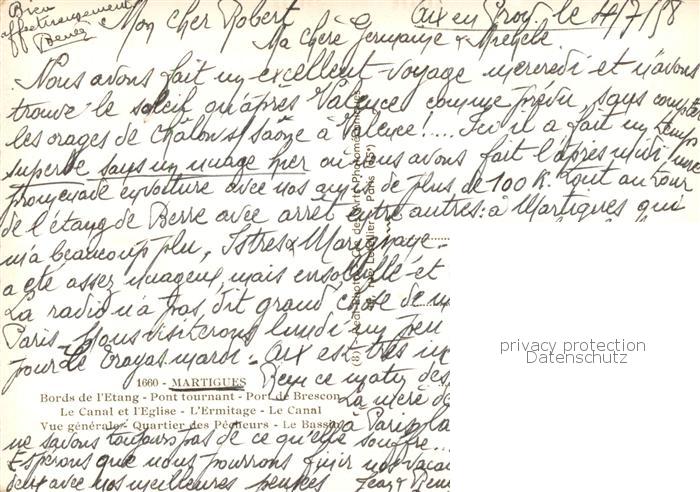 Bien
affectueusement
Aix en Prov. le 4/7/58
Mon cher Robert
Ma chère Germaine & Mireille
Nous avons fait un excellent voyage mercredi et n'avons
trouvé le soleil qu'après Valence comme prévu, sans compter
les orages de Châlon s/ Saône à Valence !.... Ici il a fait un temps
superbe sans un nuage hier où nous avons fait l'après midi une
promenade en voiture avec nos amis de plus de 100 K. tout autour
de l'étang de Berre avec arrêt entre autres : à Martigues qui
m'a beaucoup plu, Istres & Marignane.
a été assez nuageux, mais ensoleillé et
La radio n'a pas dit grand chose de
Paris. Nous visiterons lundi un peu
pour le mardi. Aix est très
1660 - MARTIGUES
ce matin des
Bords de l'Etang - Pont tournant - Port de Brescon
La mère de
Le Canal et l'Eglise - L'Ermitage - Le Canal
Vue générale - Quartier des Pêcheurs - Le Bassin
à Paris, la
ne savons toujours pas de ce qu'elle souffre...
Espérons que nous pourrons finir nos vacan
avec nos meilleures pensées Jean &
privacy protection
Datenschutz